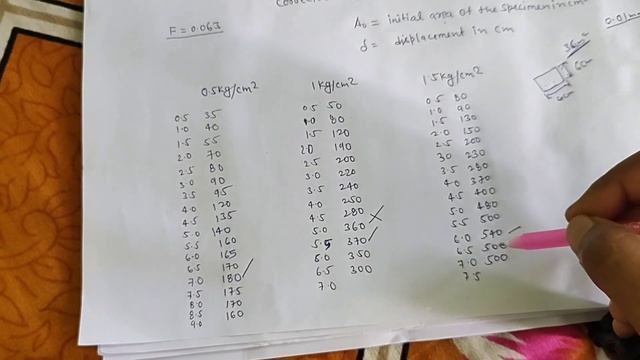 A₀ = initial area of the specimen in cm²
F = 0.063
δ = displacement in cm
0.01m
36cm²
6cm
6cm
0.5kg/cm2
0.5 35
1.0 40
1.5 55
2.0 70
2.5 80
3.0 90
3.5 95
4.0 120
4.5 135
5.0 140
5.5 160
6.0 165
6.5 170
7.0 180
7.5 175
8.0 170
8.5 160
9.0
1kg/cm2
0.5 50
1.0 80
1.5 120
2.0 190
2.5 200
3.0 220
3.5 240
4.0 250
4.5 280
5.0 360
5.5 370
6.0 350
6.5 300
7.0
1.5kg/cm2
0.5 80
1.0 90
1.5 130
2.0 150
2.5 200
30 230
3.5 280
4.0 370
4.5 400
5.0 480
5.5 500
6.0 540
6.5 500
7.0 500
7.5